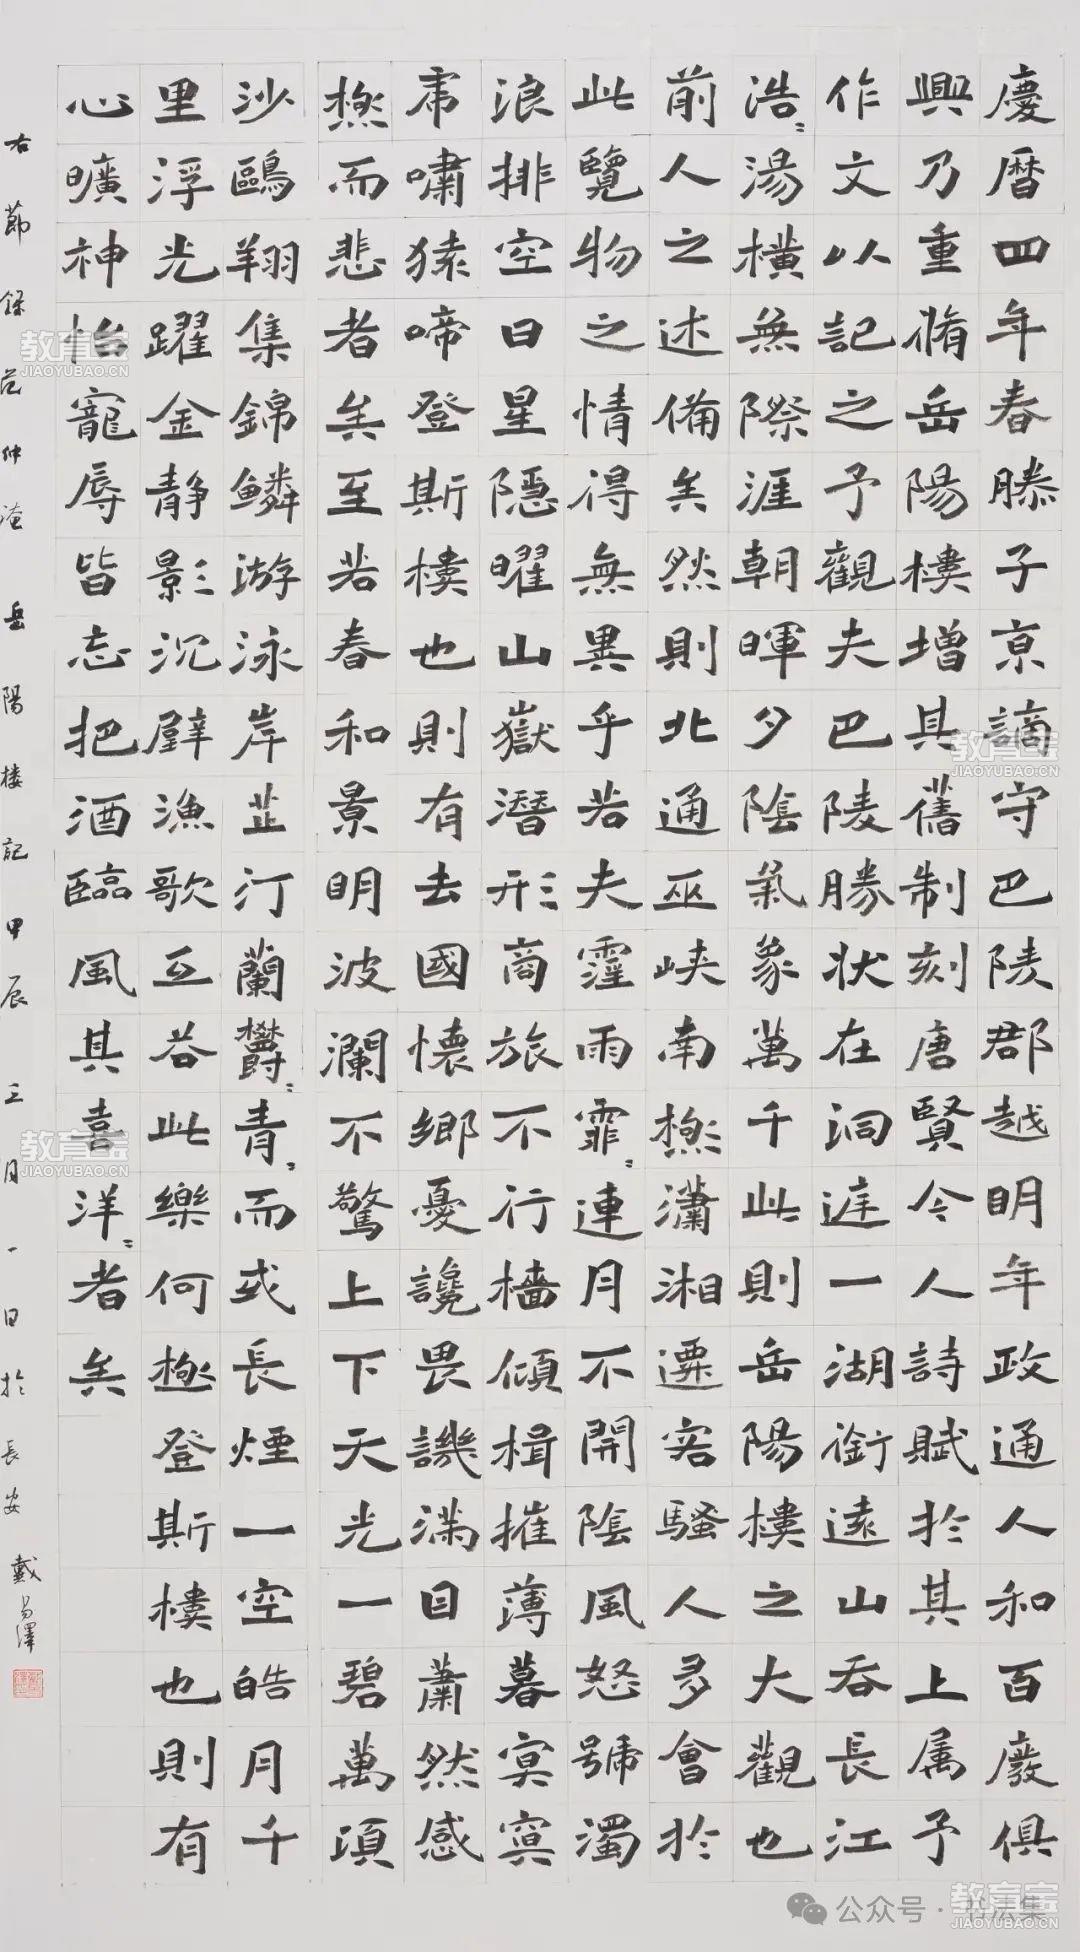 慶暦四年春滕子亰謫守巴陵郡越明年政通人和百廢俱
興乃重脩岳陽樓增其舊制刻唐賢今人詩賦於其上属予
作文以記之予觀夫巴陵勝状在洞庭一湖銜遠山吞長江
浩〻湯橫無際涯朝暉夕陰氣象萬千此則岳陽樓之大觀也
前人之述備矣然則北通巫峽南極瀟湘遷客騷人多會於
此覽物之情得無異乎若夫霪雨霏〻連月不開陰風怒號濁
浪排空日星隱曜山嶽潛形商旅不行檣傾楫摧薄暮冥冥
虎嘯猿啼登斯樓也則有去國懷鄉憂讒畏譏滿目蕭然感
極而悲者矣至若春和景明波瀾不驚上下天光一碧萬頃
沙鷗翔集錦鱗游泳岸芷汀蘭鬱〻青〻而或長煙一空皓月千
里浮光躍金静影沉璧漁歌互答此樂何極登斯樓也則有
心曠神怡寵辱皆忘把酒臨風其喜洋〻者矣
右節録范仲淹岳陽楼記甲辰三月一日於長安 戴易澤
教育宝
JIAOYUBAO.CN
教育宝
JIAOYUBAO.CN
教育宝
JIAOYUBAO.CN
教育宝
JIAOYUBAO.CN
公众号·书法集